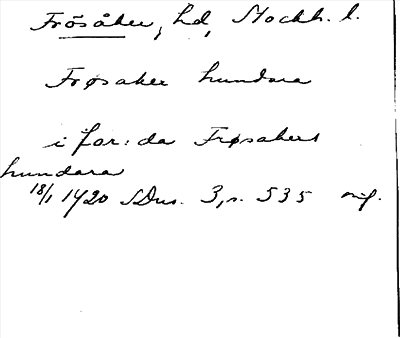 Frösåker, hd, Stockh. l.
Frøsaker hundara
i før: da Frøsakers
hundara
18/1 1420 SDns. 3, s. 535 orig.